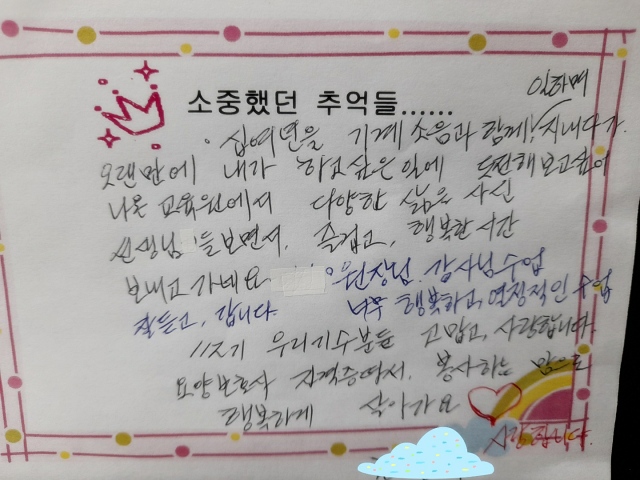 소중했던 추억들......
일하며
십여년을 기계 소음과 함께! 지내다가.
오랜만에 내가 하고싶은 일에 도전해보고싶어
나온 교육원에서 다양한 삶을 사신
선생님 들보면서. 즐겁고, 행복한 시간
보내고 가네요 원장님. 강사님 수업
잘듣고, 갑니다. 너무 행복하고, 열정적인 수업
11기 우리기수분들 고맙고, 사랑합니다.
요양보호사 자격증따서. 봉사하는 맘으로
행복하게 살아가요
사랑합니다.